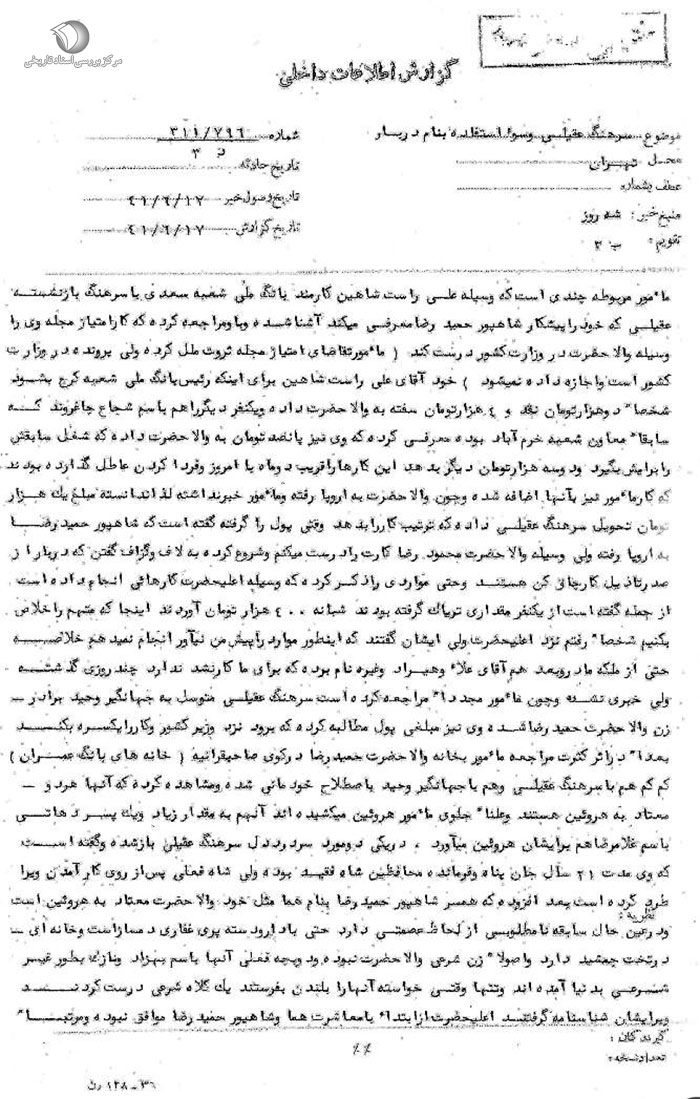 مرکز بررسی اسناد تاریخی
گزارش اطلاعات داخلی
موضوع سرهنگ عقیلی وسوء استفاده بنام دربار
محل تهران
عطف بشماره
منبع خبر: شه روز
تقویم: ب ۳
شماره ۳۱۱/۷۹۶
تاریخ حادثه
تاریخ وصول خبر ۴۱/۶/۱۷
تاریخ گزارش ۴۱/۶/۱۷
مأمور مربوطه چندی است که وسیله علی راست شاهین کارمند بانگ ملی شعبه سعدی با سرهنگ بازنشسته
عقیلی که خود را پیشکار شاهپور حمید رضا معرفی میکند آشنا شده وباو مراجعه کرده که کار امتیاز مجله وی را
وسیله والا حضرت در وزارت کشور درست کند ( مأمور تقاضای امتیاز مجله ثروت ملل کرده ولی پرونده در وزارت
کشور است واجازه داده نمیشود ) خود آقای علی راست شاهین برای اینکه رئیس بانگ ملی شعبه کرج بشود
شخصاً دوهزار تومان نقد و ٤ هزار تومان سفته به والا حضرت داده ویکنفر دیگر را هم باسم شجاع چاغروند که
سابقاً معاون شعبه خرم آباد بوده معرفی کرده که وی نیز پانصد تومان به والا حضرت داده که شغل سابقش
را برایش بگیرد ودوسه هزار تومان دیگر بدهد این کارها را قریب دوماه با امروز وفردا کردن عاطل گذارده بودند
که کار مأمور نیز بآنها اضافه شده وچون والا حضرت به اروپا رفته ومأمور خبر نداشته لذا ندانسته مبلغ یك هزار
تومان تحویل سرهنگ عقیلی داده که ترتیب کار را بدهد وقتی پول را گرفته گفته است که شاهپور حمید رضا
به اروپا رفته ولی وسیله والا حضرت محمود رضا کارت را درست میکنم وشروع کرده به لاف وگزاف گفتن که دربار از
صدر تا ذیل کارچاق کن هستند وحتی مواردی را ذکر کرده که وسیله اعلیحضرت کارهائی انجام داده است
از جمله گفته است از یکنفر مقداری تریاك گرفته بودند شبانه ۴۰۰ هزار تومان آوردند اینجا که متهم را خلاص
بکنیم شخصاً رفتم نزد اعلیحضرت ولی ایشان گفتند که اینطور موارد را پیش من نیاور انجام نمیدهم خلاصه
حتی از ملکه مادر وبعد هم آقای علاء وهیراد وغیره نام برده که برای ما کار نشد ندارد چند روزی گذشته
ولی خبری نشده وچون مأمور مجدداً مراجعه کرده است سرهنگ عقیلی متوسل به جهانگیر وحید برادر
زن والا حضرت حمید رضا شده وی نیز مبلغی پول مطالبه کرده که برود نزد وزیر کشور وکار را یکسره بکند
بعداً در اثر کثرت مراجعه مأمور بخانه والا حضرت حمید رضا در کوی صاحبقرانیه ( خانه های بانگ عمران )
کم کم هم با سرهنگ عقیلی وهم با جهانگیر وحید باصطلاح خودمانی شده ومشاهده کرده که آنها هردو
معتاد به هروئین هستند وعلناً جلوی مأمور هروئین میکشیده اند آنهم به مقدار زیاد ویك پسر دهاتی
باسم غلامرضا هم برایشان هروئین میآورد . در یکی دومورد سر درددل سرهنگ عقیلی باز شده وگفته است
که وی مدت ۲۱ سال جان پناه وفرمانده محافظین شاه فقید بوده ولی شاه فعلی پس از روی کار آمدن ویرا
طرد کرده است بعد افزوده که همسر شاهپور حمید رضا بنام هما مثل خود والا حضرت معتاد به هروئین است
نظریه:
ودرعین حال سابقه نامطلوبی از لحاظ عصمتی دارد حتی با دارودسته پری غفاری دمساز است وخانه ای
در تخت جمشید دارد واصولاً زن شرعی والا حضرت نبوده ودوبچه فعلی آنها باسم بهزاد ونازك بطور غیر
شرعی بدنیا آمده اند وتنها وقتی خواسته آنها را بلندن بفرستند یك کلاه شرعی درست کردند
وبرایشان شناسنامه گرفتند اعلیحضرت از ابتداء با معاشرت هما وشاهپور حمید رضا موافق نبوده ومرتباً
گیرندگان:
تعداد نسخه:
۳۶ - ۱۲۸ ر